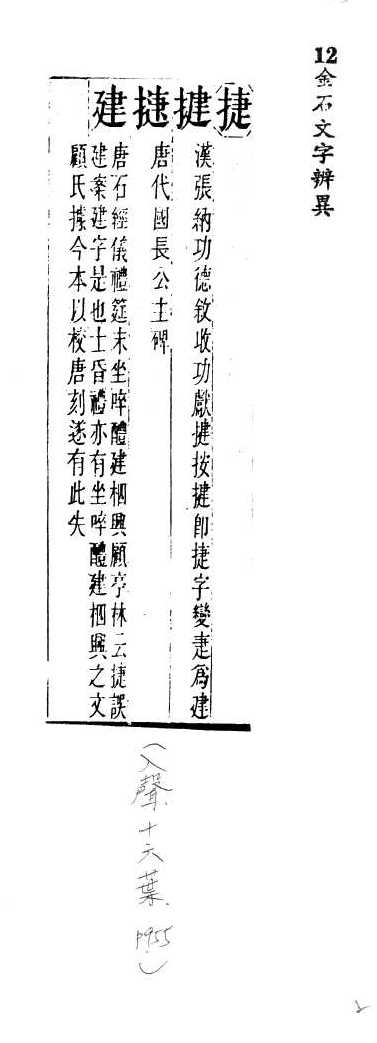 12金石文字辨異
捷
揵
漢張納功德敘收功獻揵按揵即捷字變疌為建
㨗
唐代國長公主碑
建
唐石經儀禮筵末坐啐醴建柶興顧亭林云捷誤
建案建字是也士昏禮亦有坐啐醴建柶興之文
顧氏據今本以校唐刻遂有此失
(入聲．十六葉．P955)